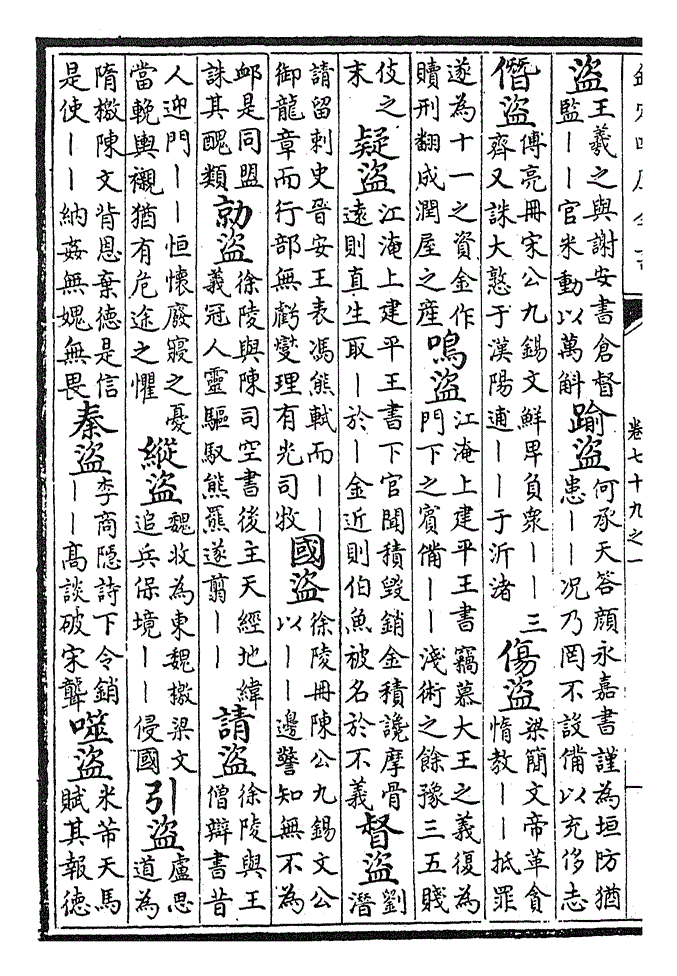 卷七十九之一
盜 王羲之與謝安書倉督監——官米動以萬斛 踰盜 何承天答顔永嘉書謹為垣防猶患——况乃罔不設備以充侈志
僭盜 傅亮冊宋公九錫文鮮卑負衆——三齊又誅大憝于漢陽逋——于沂渚 傷盜 梁簡文帝革貪惰教——抵罪
遂為十一之資金作贖刑翻成潤屋之産 鳴盜 江淹上建平王書竊慕大王之義復為門下之賓備——淺術之餘豫三五賤
伎之末 疑盜 江淹上建平王書下官聞積毀銷金積讒摩骨遠則直生取—於—金近則伯魚被名於不義 督盜 劉潛
請留刺史晉安王表馮熊軾而——御龍章而行部無虧燮理有光司牧 國盜 徐陵冊陳公九錫文公以——邊警知無不為
䘏是同盟誅其醜類 勍盜 徐陵與陳司空書後主天經地緯義冠人靈驅馭熊羆遂翦—— 請盜 徐陵與王僧辯書昔
人迎門——恒懷廢寢之憂當輓輿襯猶有危途之懼 縱盜 魏收為東魏檄梁文追兵保境——侵國 引盜 盧思道為
隋檄陳文背恩棄德是信是使——納姦無媿無畏 秦盜 李商隱詩下令銷——高談破宋聾 噬盜 米芾天馬賦其報德